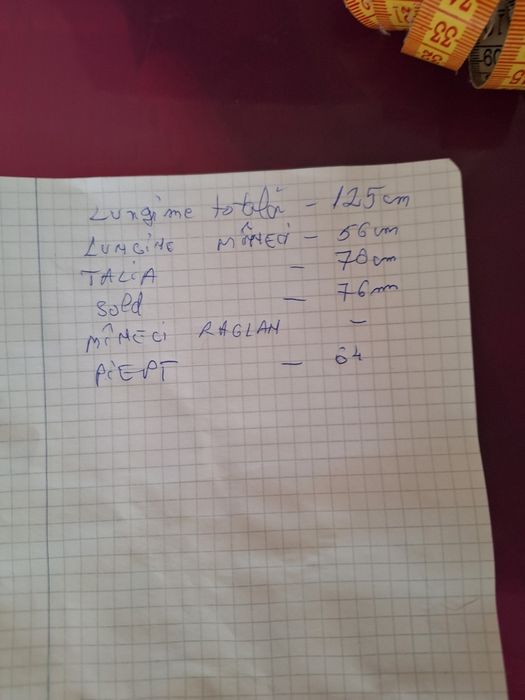 Lungime totală - 125cm
LUNGINE MÎNECI - 56cm
TALIA - 70cm
Sold - 76mm
MÎNECI RAGLAN -
PIEPT - 64
33
32